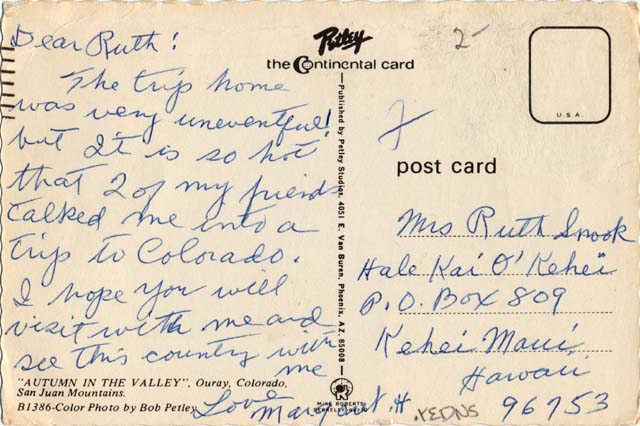 Dear Ruth!
The trip home
was very uneventful!
but It is so hot
that 2 of my friends
talked me into a
trip to Colorado.
I hope you will
visit with me and
see this country with
me
Love
"AUTUMN IN THE VALLEY", Ouray, Colorado,
San Juan Mountains.
B1386-Color Photo by Bob Petley
Petley
the Continental card
—Published by Petley Studios, 4051 E. Van Buren, Phoenix, AZ. 85008—
MIKE ROBERTS
2-
U.S.A.
post card
Mrs Ruth Snook
Hale Kai O' Kehei
P.O. Box 809
Kehei Maui,
Hawaii
96753